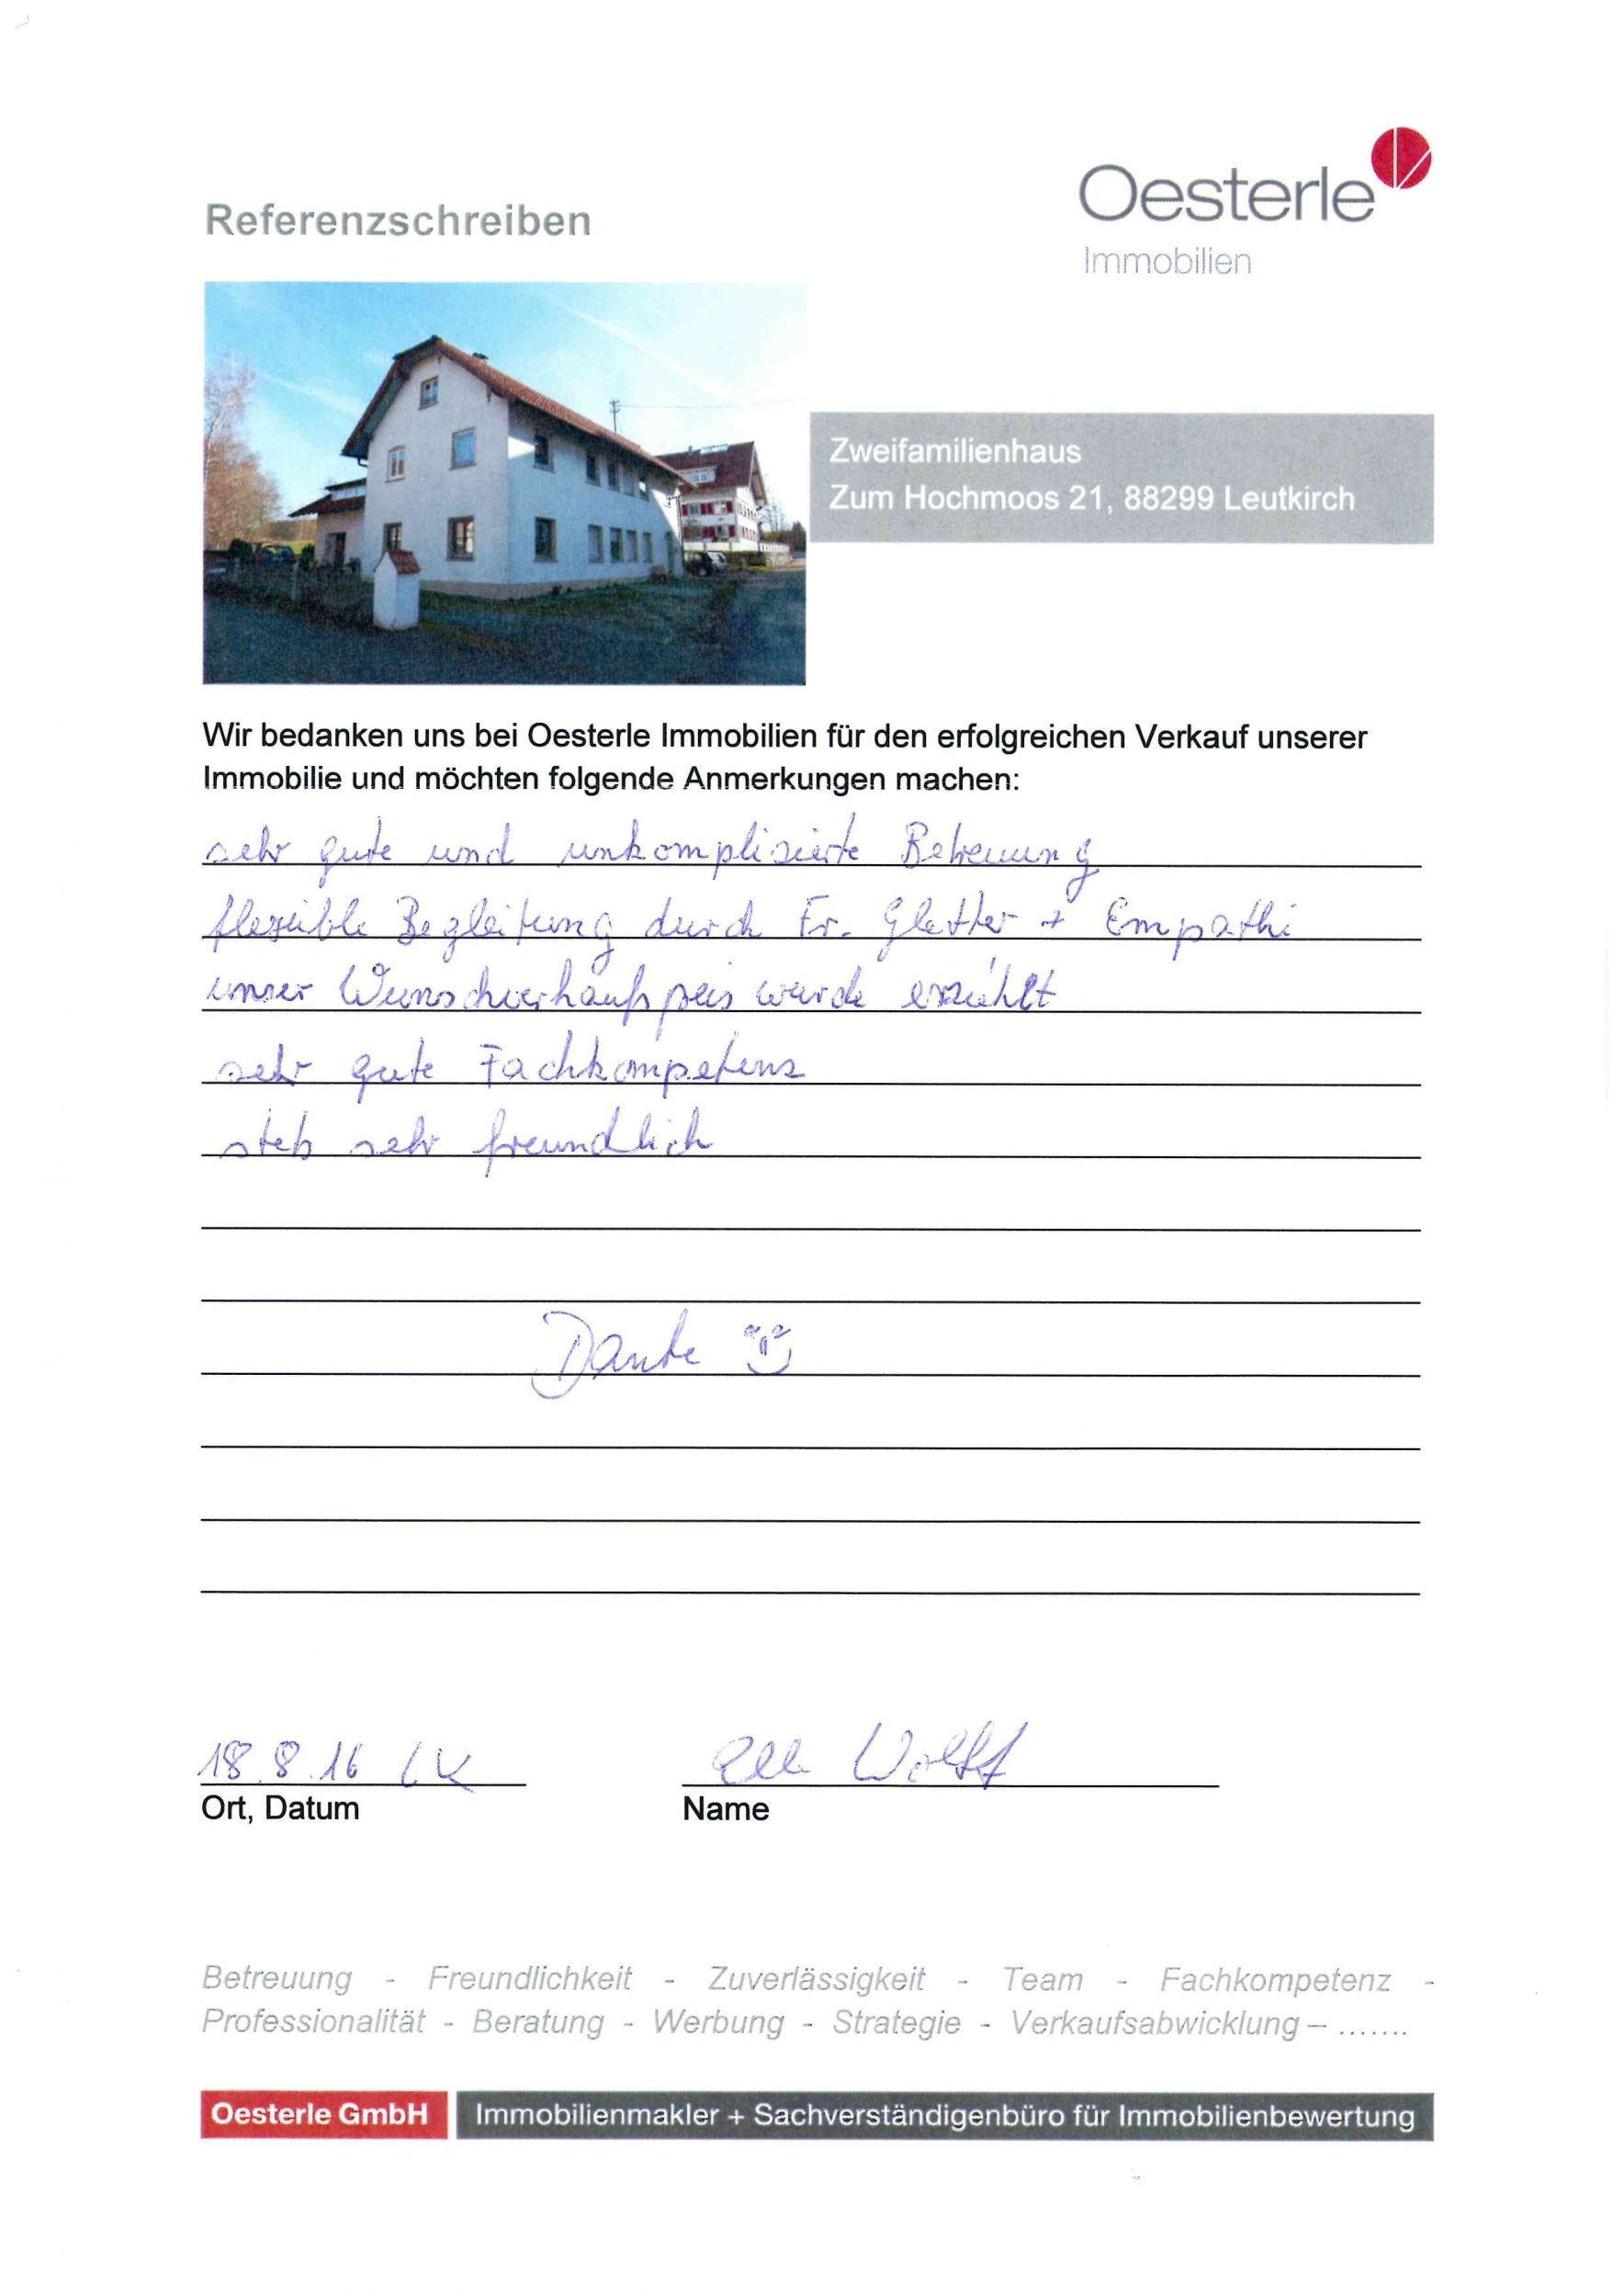 Referenzschreiben
Oesterle
Immobilien
Zweifamilienhaus
Zum Hochmoos 21, 88299 Leutkirch
Wir bedanken uns bei Oesterle Immobilien für den erfolgreichen Verkauf unserer
Immobilie und möchten folgende Anmerkungen machen:
sehr gute und unkomplizierte Betreuung
flexible Begleitung durch Fr. + Empathi
unser Wunschverkaufspreis wurde erzielt
sehr gute Fachkompetenz
stets sehr freundlich
Danke
18.8.16 LK
Wolff
Ort, Datum
Name
Betreuung - Freundlichkeit - Zuverlässigkeit - Team - Fachkompetenz -
Professionalität - Beratung - Werbung - Strategie - Verkaufsabwicklung – .......
Oesterle GmbH
Immobilienmakler + Sachverständigenbüro für Immobilienbewertung